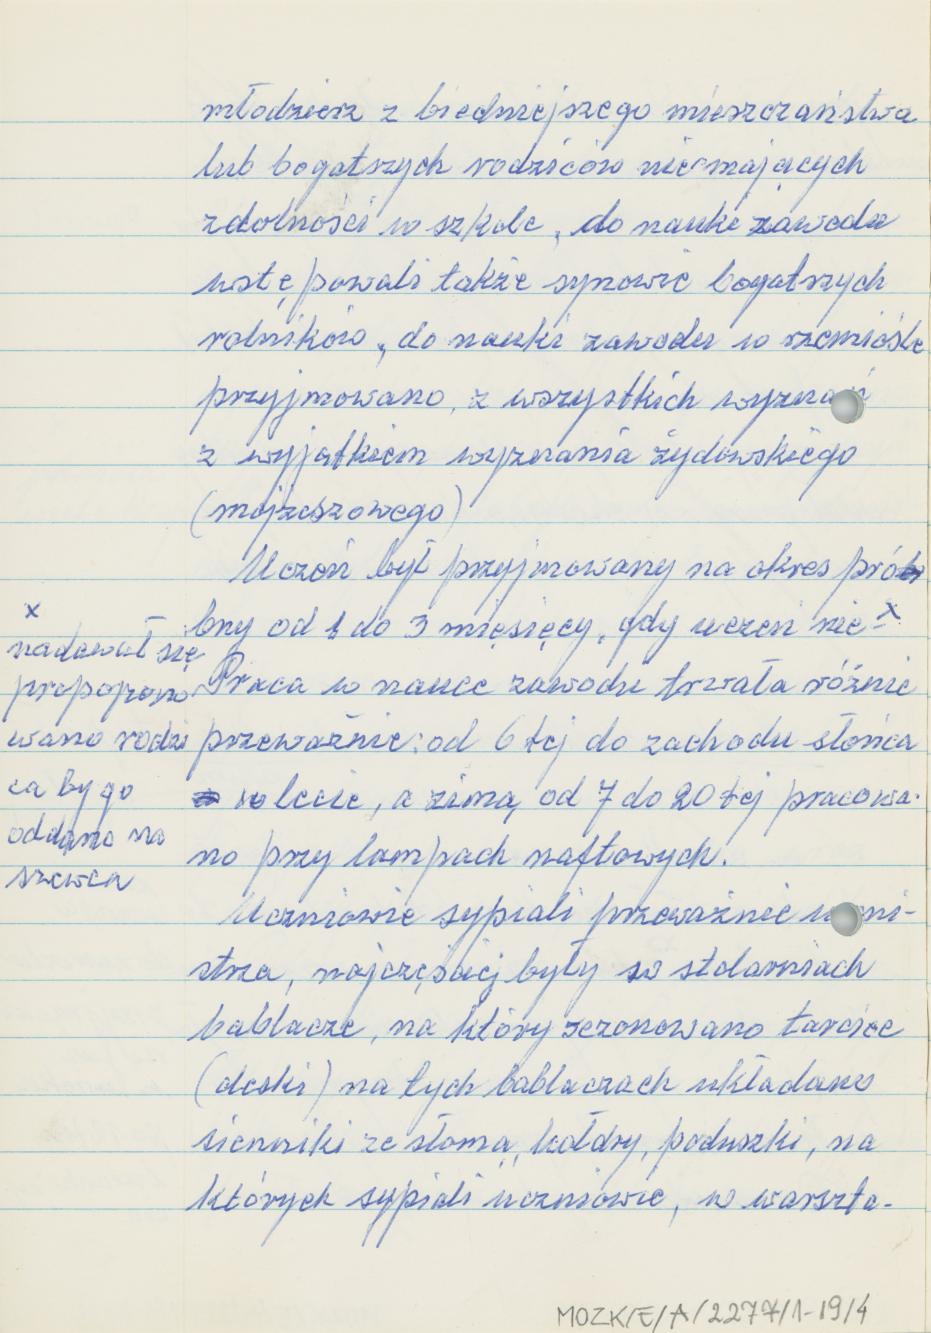 młodzierz z biedniejszego mieszczaństwa
lub bogatszych rodziców nie mających
zdolności w szkole, do nauki zawodu
wstępowali także synowie bogatszych
rolników, do nauki zawodu w rzemiośle
przyjmowano, z wszystkich wyznań
z wyjątkiem wyznania żydowskiego
(mojżeszowego)
Uczeń był przyjmowany na okres pró
bny od 1 do 3 miesięcy, gdy uczeń nie- x
x
nadawał się
propopono
wano rodzi
ca by go
oddano na
szewca
Praca w nauce zawodu trwała różnie
przeważnie: od 6 tej do zachodu słońca
w lecie, a zimą od 7 do 20 tej pracowa-
no przy lampach naftowych.
Uczniowie sypiali przeważnie u mi-
strza, najczęściej były w stolarniach
bablacze, na który sezonowano tarcice
(deski) na tych bablaczach układano
sienniki ze słomą, kołdry, poduszki, na
których sypiali uczniowie, w warszta-
MOZK/E/A/2277/1-19/4